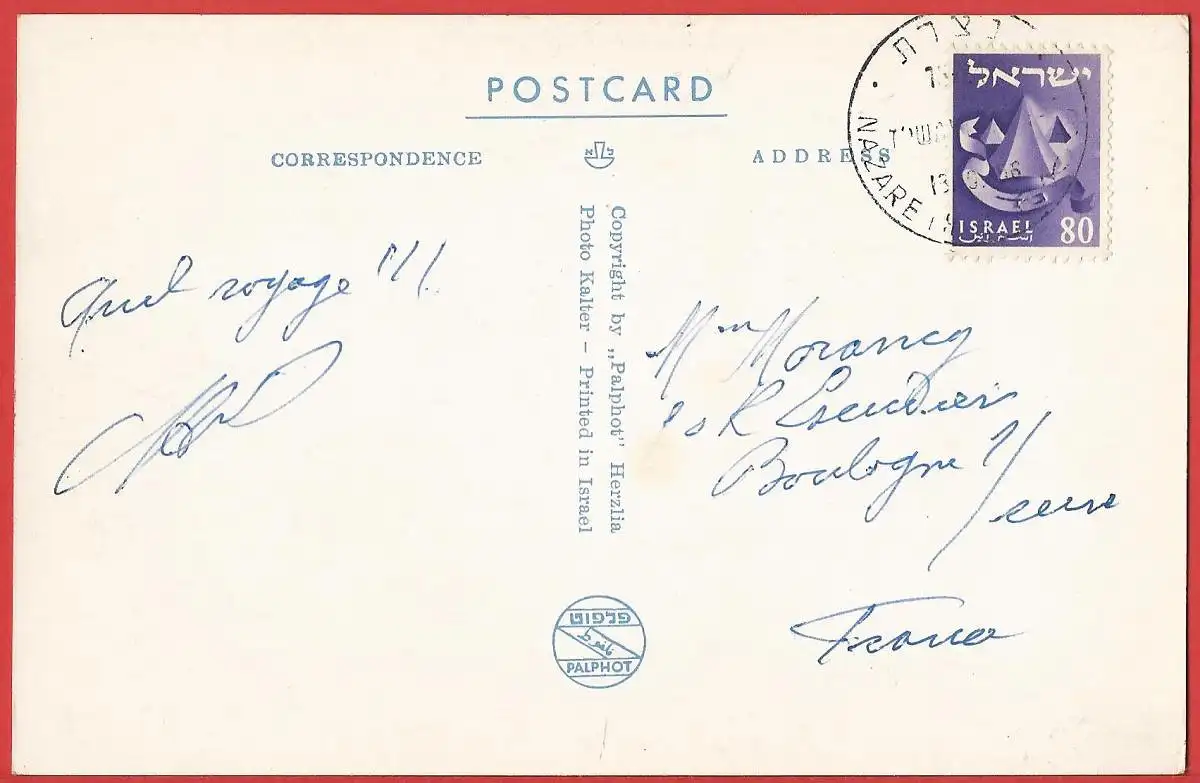 POSTCARD
CORRESPONDENCE
ADDRESS
נצרת
NAZARETH
ישראל
ISRAEL 80
اسرائيل
Quel voyage !!!
Copyright by „Palphot" Herzlia
Photo Kalter – Printed in Israel
Mme Morancy
R Escudier
Boulogne s/
seine
France
פלפוט
PALPHOT